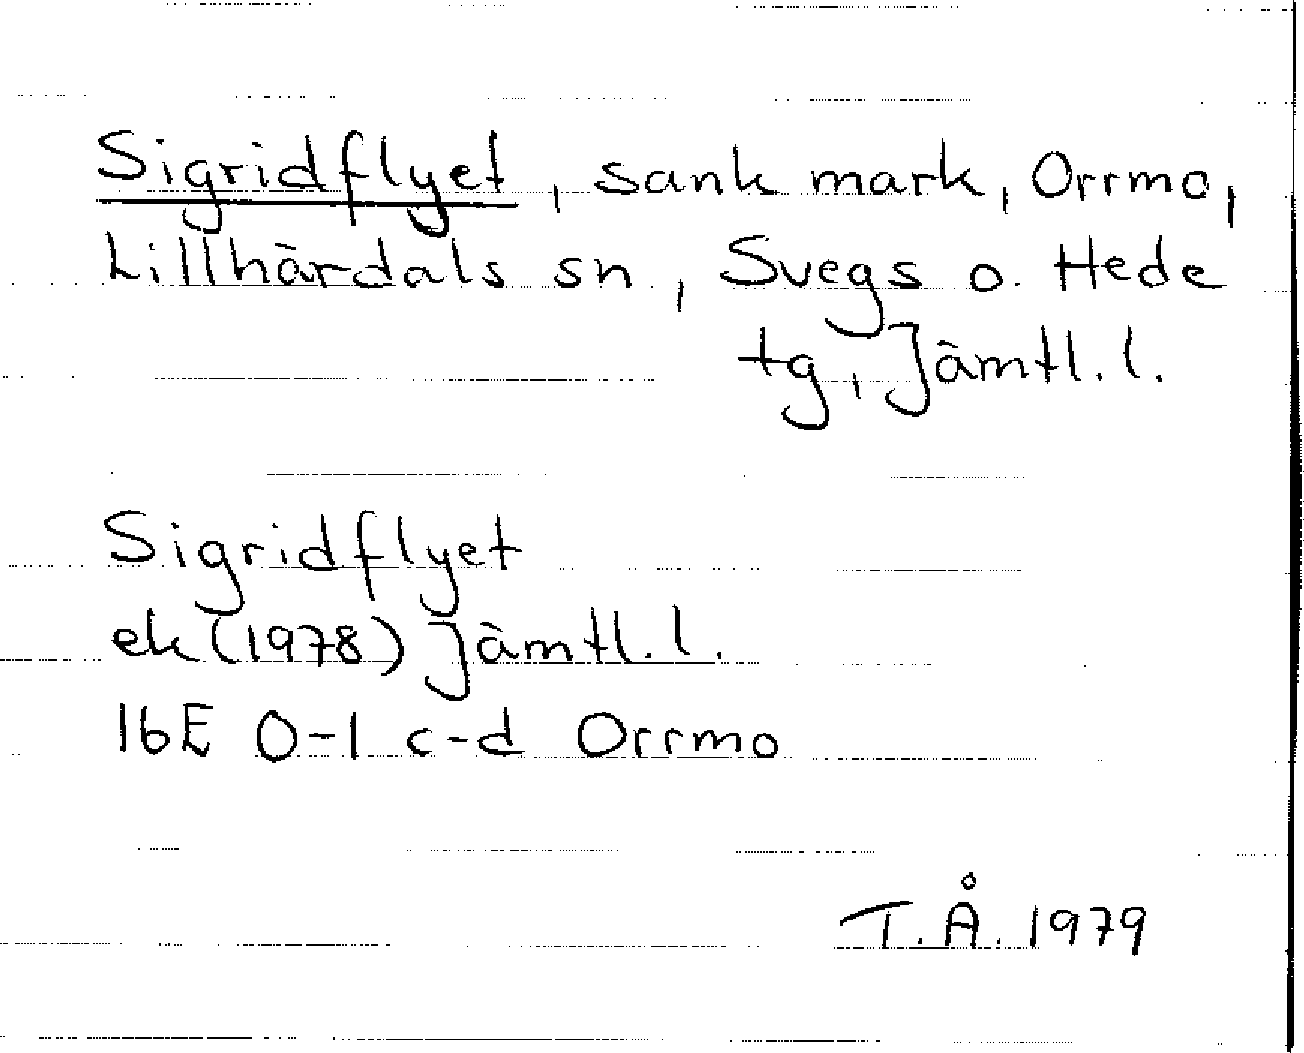 Sigridflyet, sank mark, Orrmo,
Lillhärdals sn, Svegs o. Hede
tg, Jämtl.l.
Sigridflyet
ek (1978) Jämtl.l.
16E 0-1 c-d Orrmo
T.Å. 1979